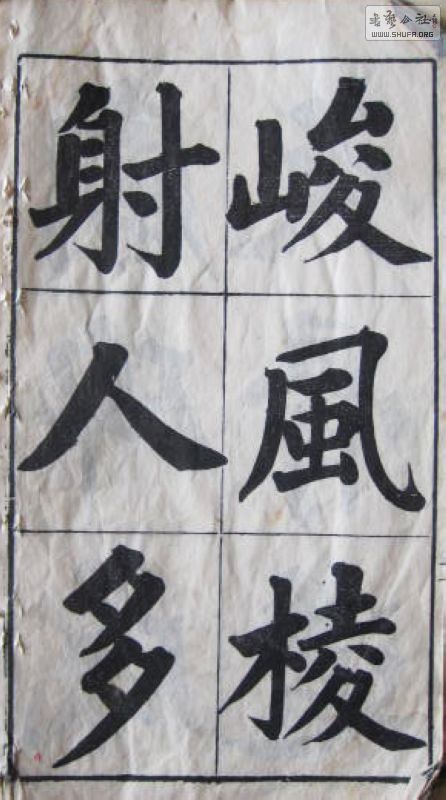 峻風棱
射人多
书艺公社
WWW.SHUFA.ORG